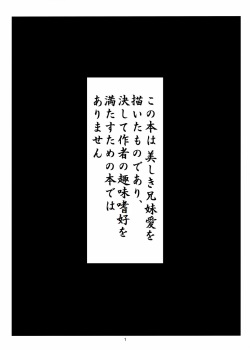 この本は美しき兄妹愛を
描いたものであり、
決して作者の趣味嗜好を
満たすための本では
ありません
1